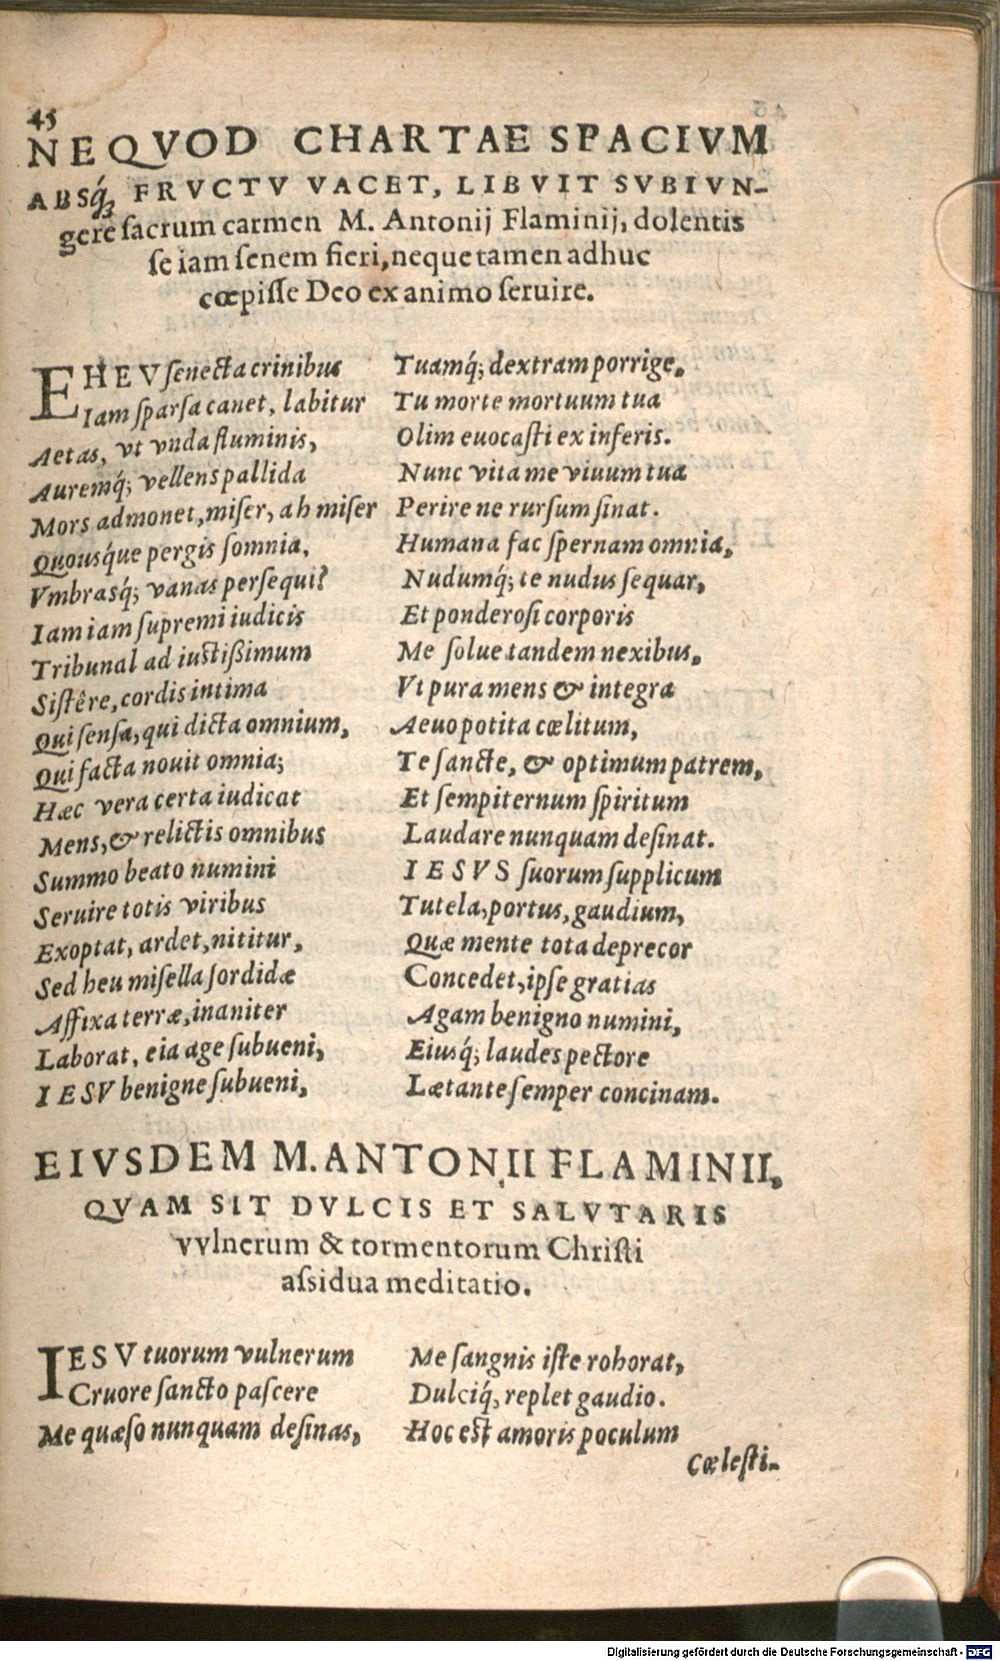 45
NE QVOD CHARTAE SPACIVM
ABSq́ꝫ FRVCTV VACET, LIBVIT SVBIVN-
gere ſacrum carmen M. Antonij Flaminij, dolentis
ſe iam ſenem fieri, neque tamen adhuc
cœpiſſe Deo ex animo ſeruire.
EHEV ſenecta crinibus
Iam ſparſa canet, labitur
Aetas, vt vnda fluminis,
Auremq́; vellens pallida
Mors admonet, miſer, ah miſer
Quousq́ue pergis ſomnia,
Vmbrasq́; vanas perſequi?
Iam iam ſupremi iudicis
Tribunal ad iustißimum
Siſtêre, cordis intima
Qui ſenſa, qui dicta omnium,
Qui facta nouit omnia;
Hæc vera certa iudicat
Mens, & relictis omnibus
Summo beato numini
Seruire totis viribus
Exoptat, ardet, nititur,
Sed heu miſella ſordidæ
Affixa terræ, inaniter
Laborat, eia age ſubueni,
IESV benigne ſubueni,
Tuamq́; dextram porrige.
Tu morte mortuum tua
Olim euocaſti ex inferis.
Nunc vita me viuum tua
Perire ne rurſum ſinat.
Humana fac ſpernam omnia,
Nudumq́; te nudus ſequar,
Et ponderoſi corporis
Me ſolue tandem nexibus,
Vt pura mens & integra
Aeuo potita cœlitum,
Te ſancte, & optimum patrem,
Et ſempiternum ſpiritum
Laudare nunquam deſinat.
IESVS ſuorum ſupplicum
Tutela, portus, gaudium,
Quæ mente tota deprecor
Concedet, ipſe gratias
Agam benigno numini,
Eiusq́; laudes pectore
Lætante ſemper concinam.
EIVSDEM M. ANTONII FLAMINII,
QVAM SIT DVLCIS ET SALVTARIS
vvlnerum & tormentorum Chriſti
aſsidua meditatio.
IESV tuorum vulnerum
Cruore ſancto paſcere
Me quæſo nunquam deſinas,
Me ſangnis iſte rohorat,
Dulciq́, replet gaudio.
Hoc est amoris poculum
Cœleſti-
Digitalisierung gefördert durch die Deutsche Forschungsgemeinschaft - DFG